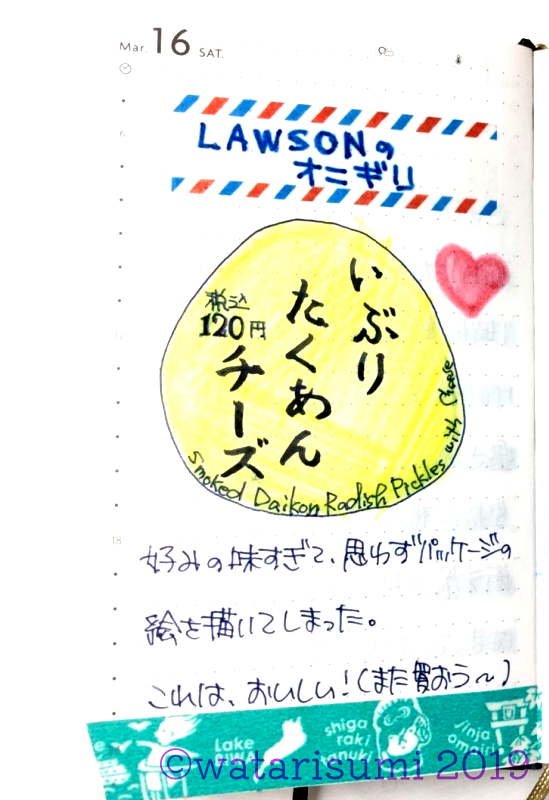 Mar. 16 SAT.
LAWSONの
オニギリ
いぶり
たくあん
チーズ
税込
120円
Smoked Daikon Radish Pickles with Cheese
18
好みの味すぎて、思わずパッケージの
絵を描いてしまった。
これは、おいしい!(また買おう〜)
Lake
shiga
raki
jinja
©watarisumi 2019